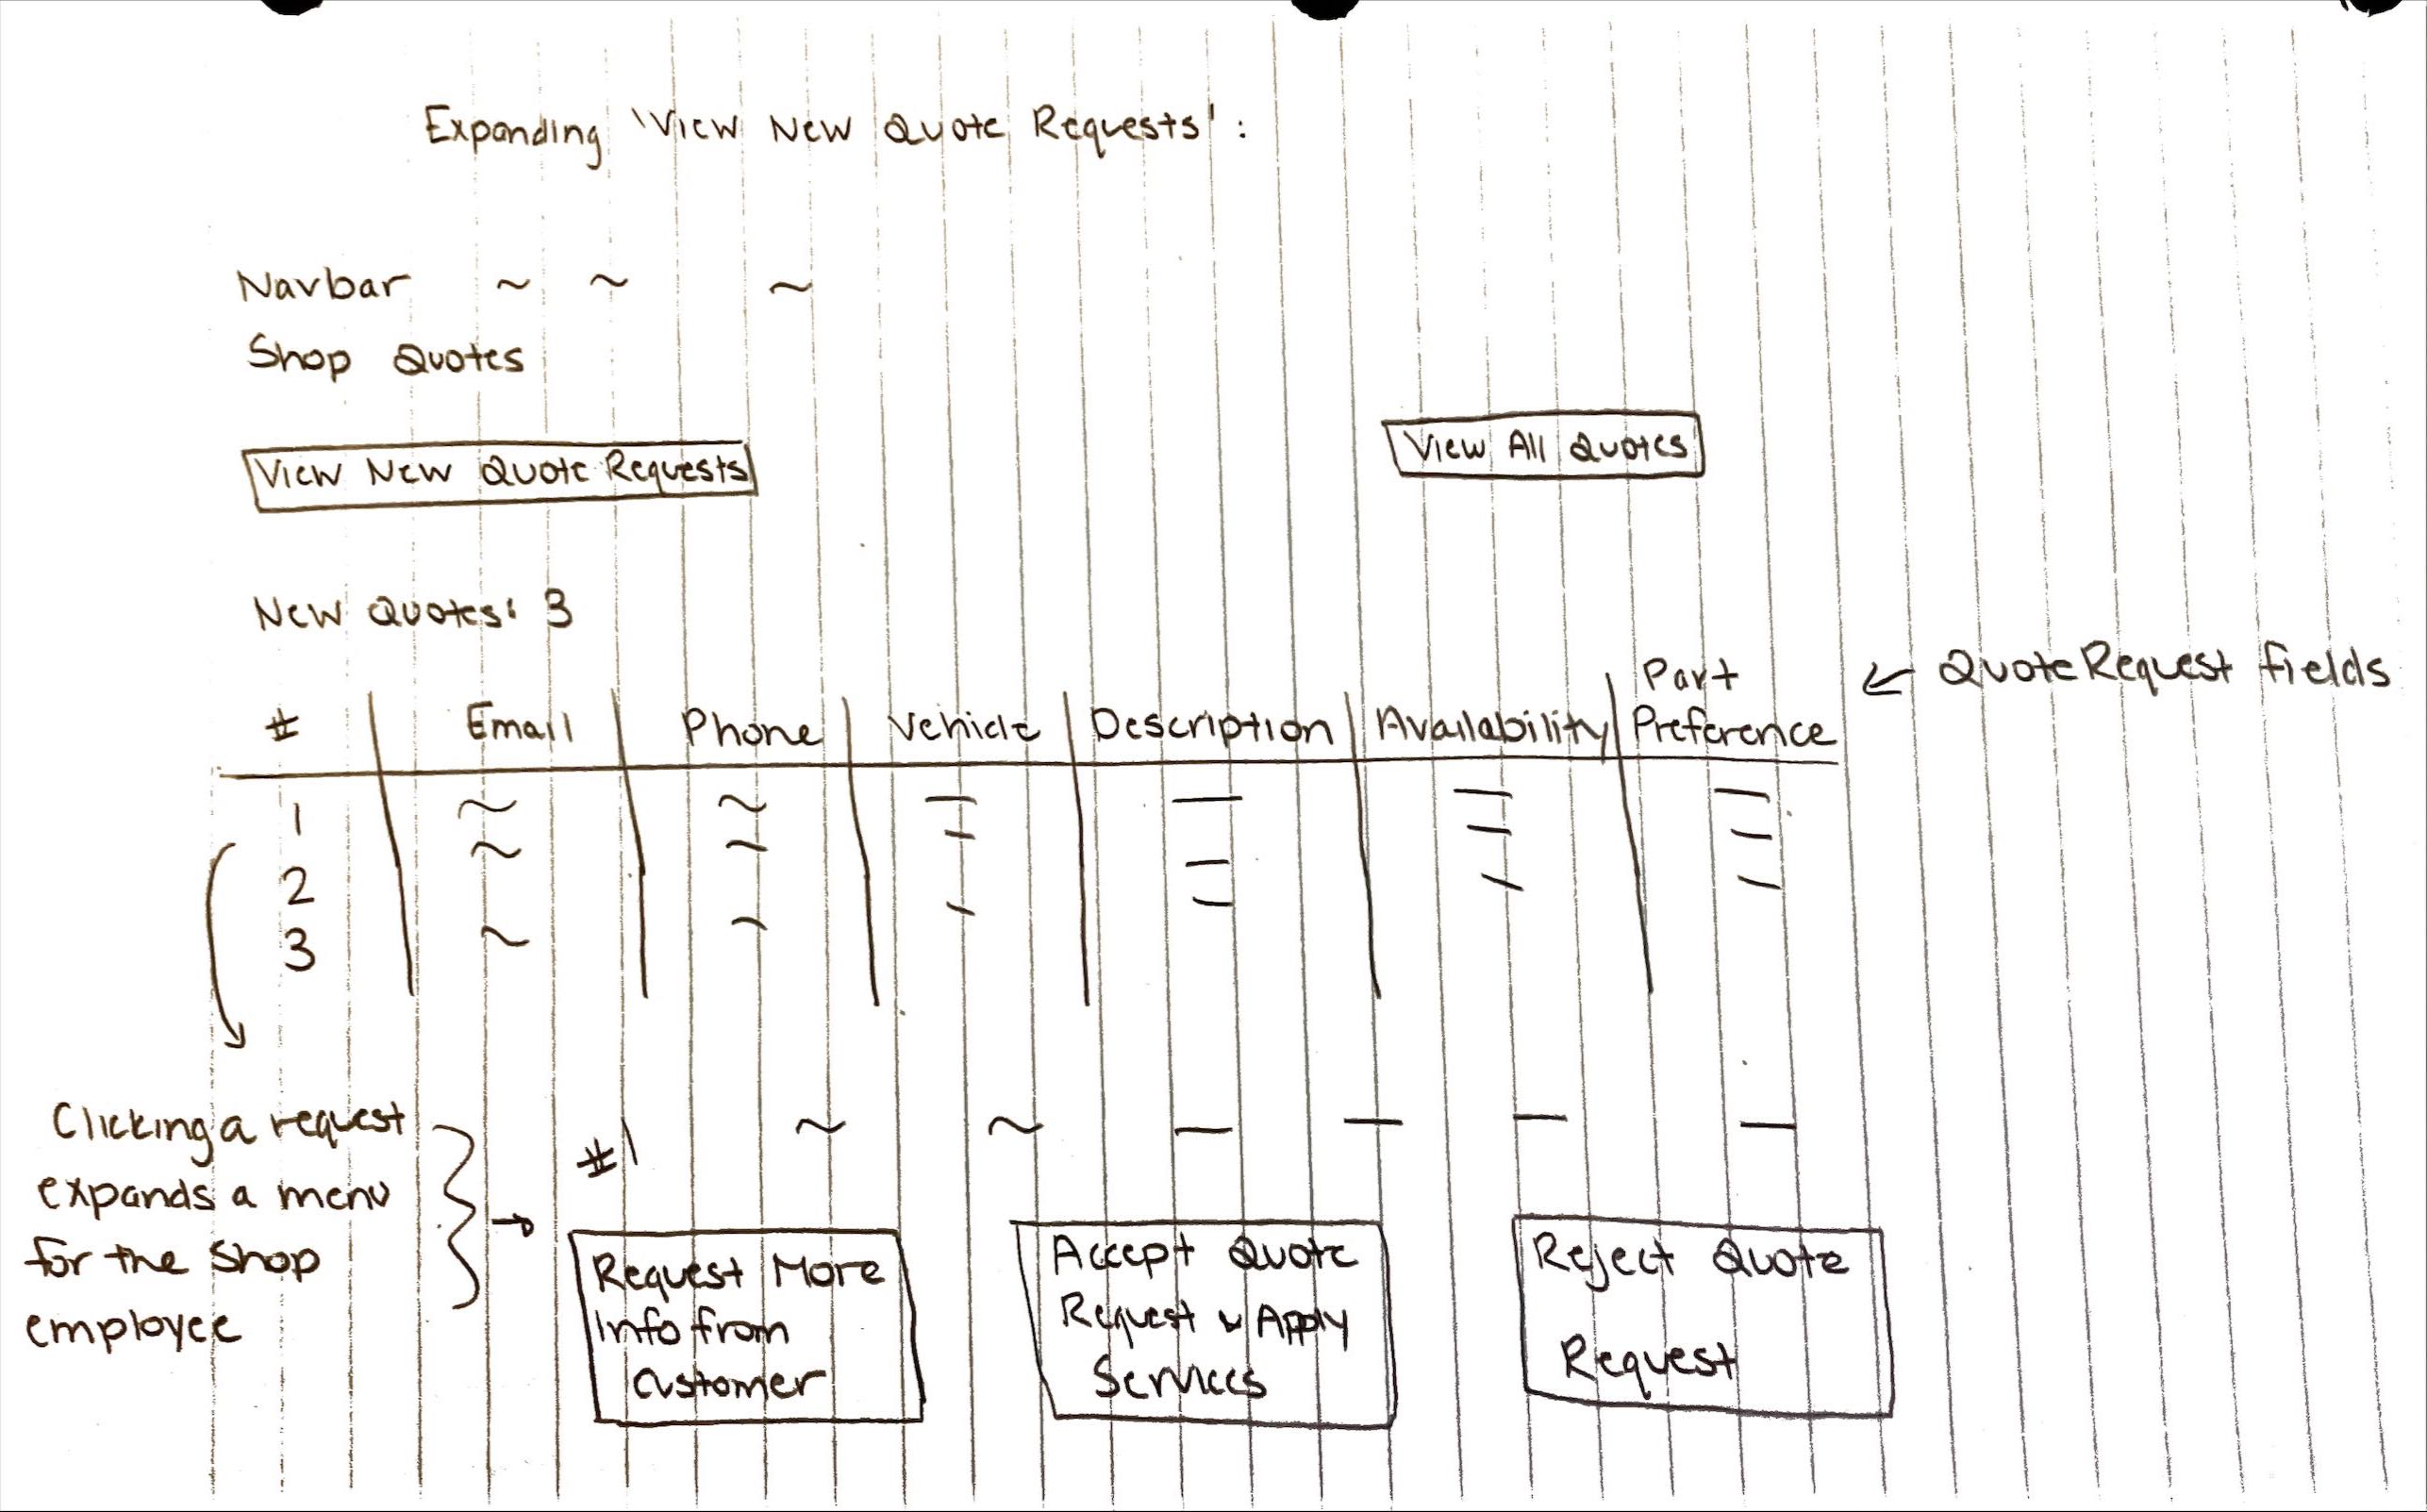 Expanding 'View New Quote Requests':
Navbar ~ ~ ~
Shop Quotes
View New Quote Requests
View All Quotes
New Quotes: 3
# Email Phone Vehicle Description Availability Part Preference
← QuoteRequest fields
1 ~ ~ — — — —
2 ~ ~ — — — —
3 ~ ~ — — — —
Clicking a request
expands a menu
for the shop
employee
→
#1 ~ ~ — — — —
Request More
Info from
Customer
Accept Quote
Request & Apply
Services
Reject Quote
Request